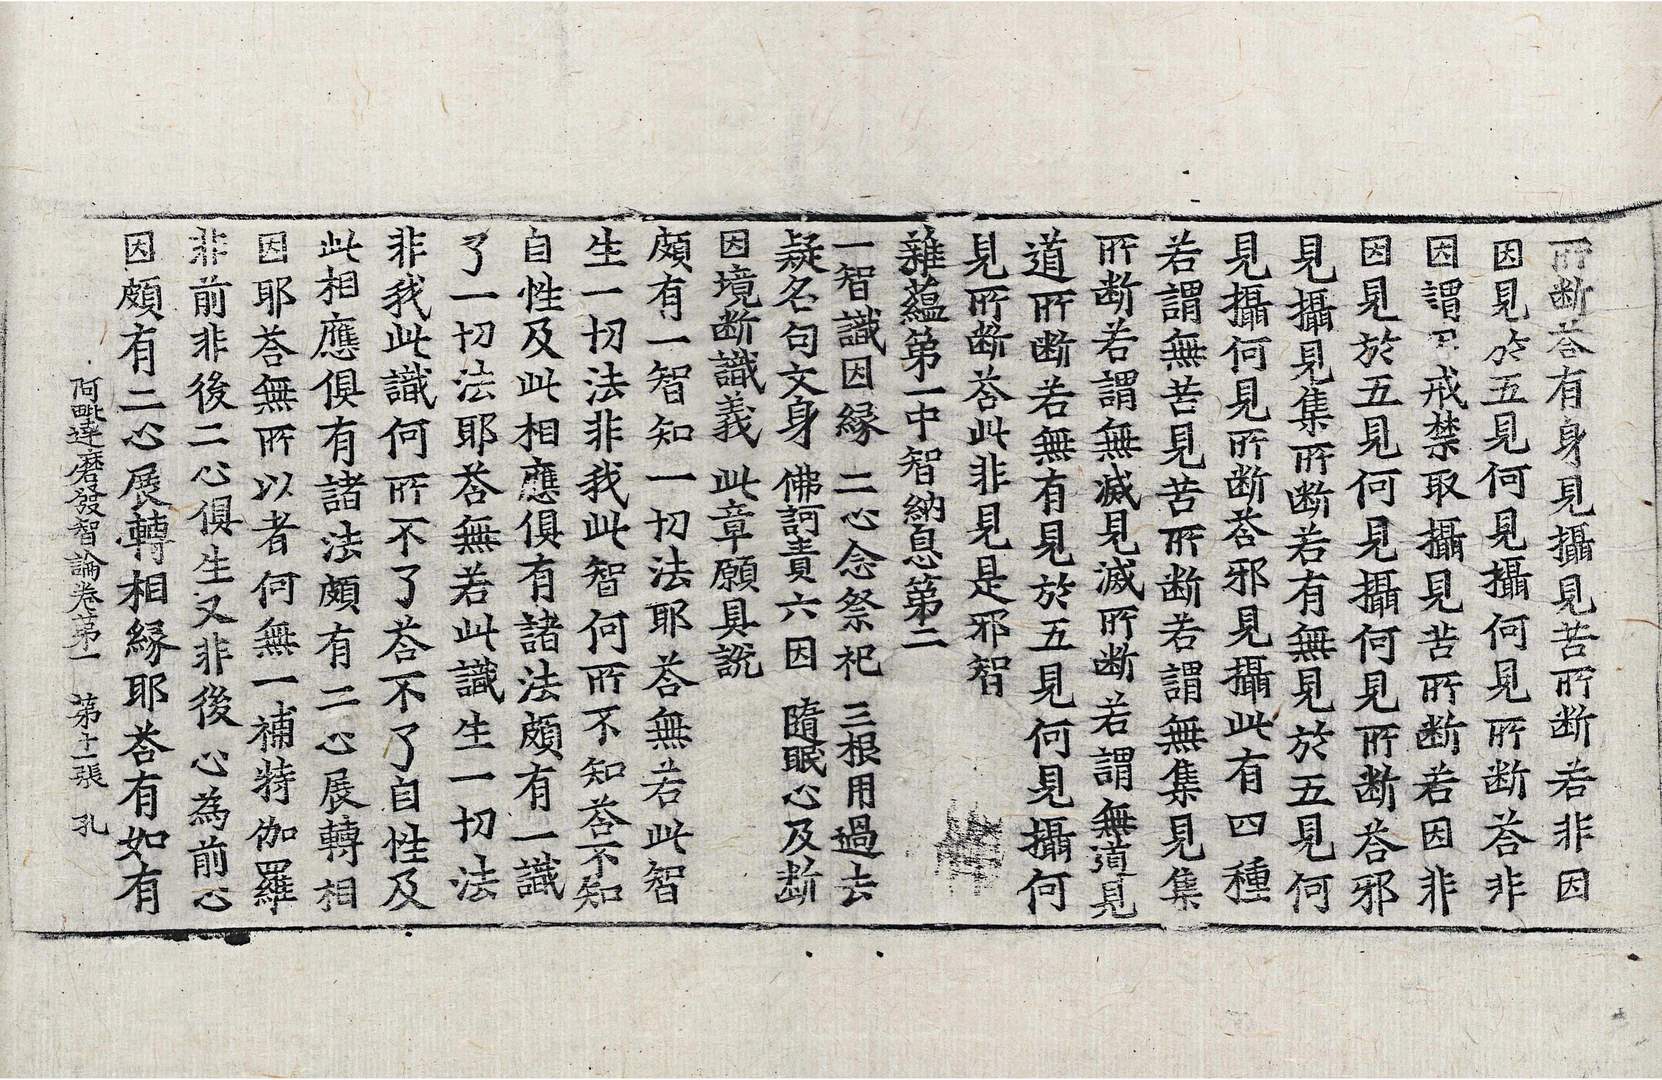 所断荅有身見攝見苦所断若非因
因見於五見何見攝何見所断荅非
因謂戒禁取攝見苦所断若因非
因見於五見何見攝何見所断荅邪
見攝見集所断若有無見於五見何
見攝何見所断荅邪見攝此有四種
若謂無苦見苦所断若謂無集見集
所断若謂無滅見滅所断若謂無道見
道所断若無有見於五見何見攝何
見所断荅此非見是邪智
雜蘊第一中智納息第二
一智識因緣 二心念祭祀 三根用過去
疑名句文身 佛訶責六因 隨眠心及断
因境断識義 此章願具說
頗有一智知一切法耶荅無若此智
生一切法非我此智何所不知荅不知
自性及此相應俱有諸法頗有一識
了一切法耶荅無若此識生一切法
非我此識何所不了荅不了自性及
此相應俱有諸法頗有二心展轉相
因耶荅無所以者何無一補特伽羅
非前非後二心俱生又非後心為前心
因頗有二心展轉相緣耶荅有如有
阿毗達磨發智論卷第一 第十一張 孔